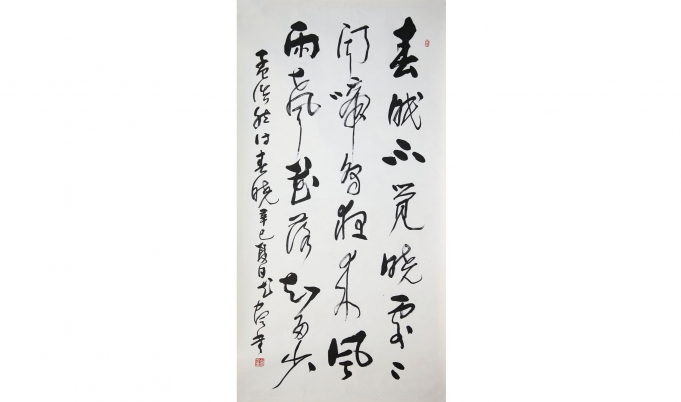 春眠不觉晓处々
闻啼鸟夜来风
雨声花落知多少
孟浩然诗春晓辛巳夏日书